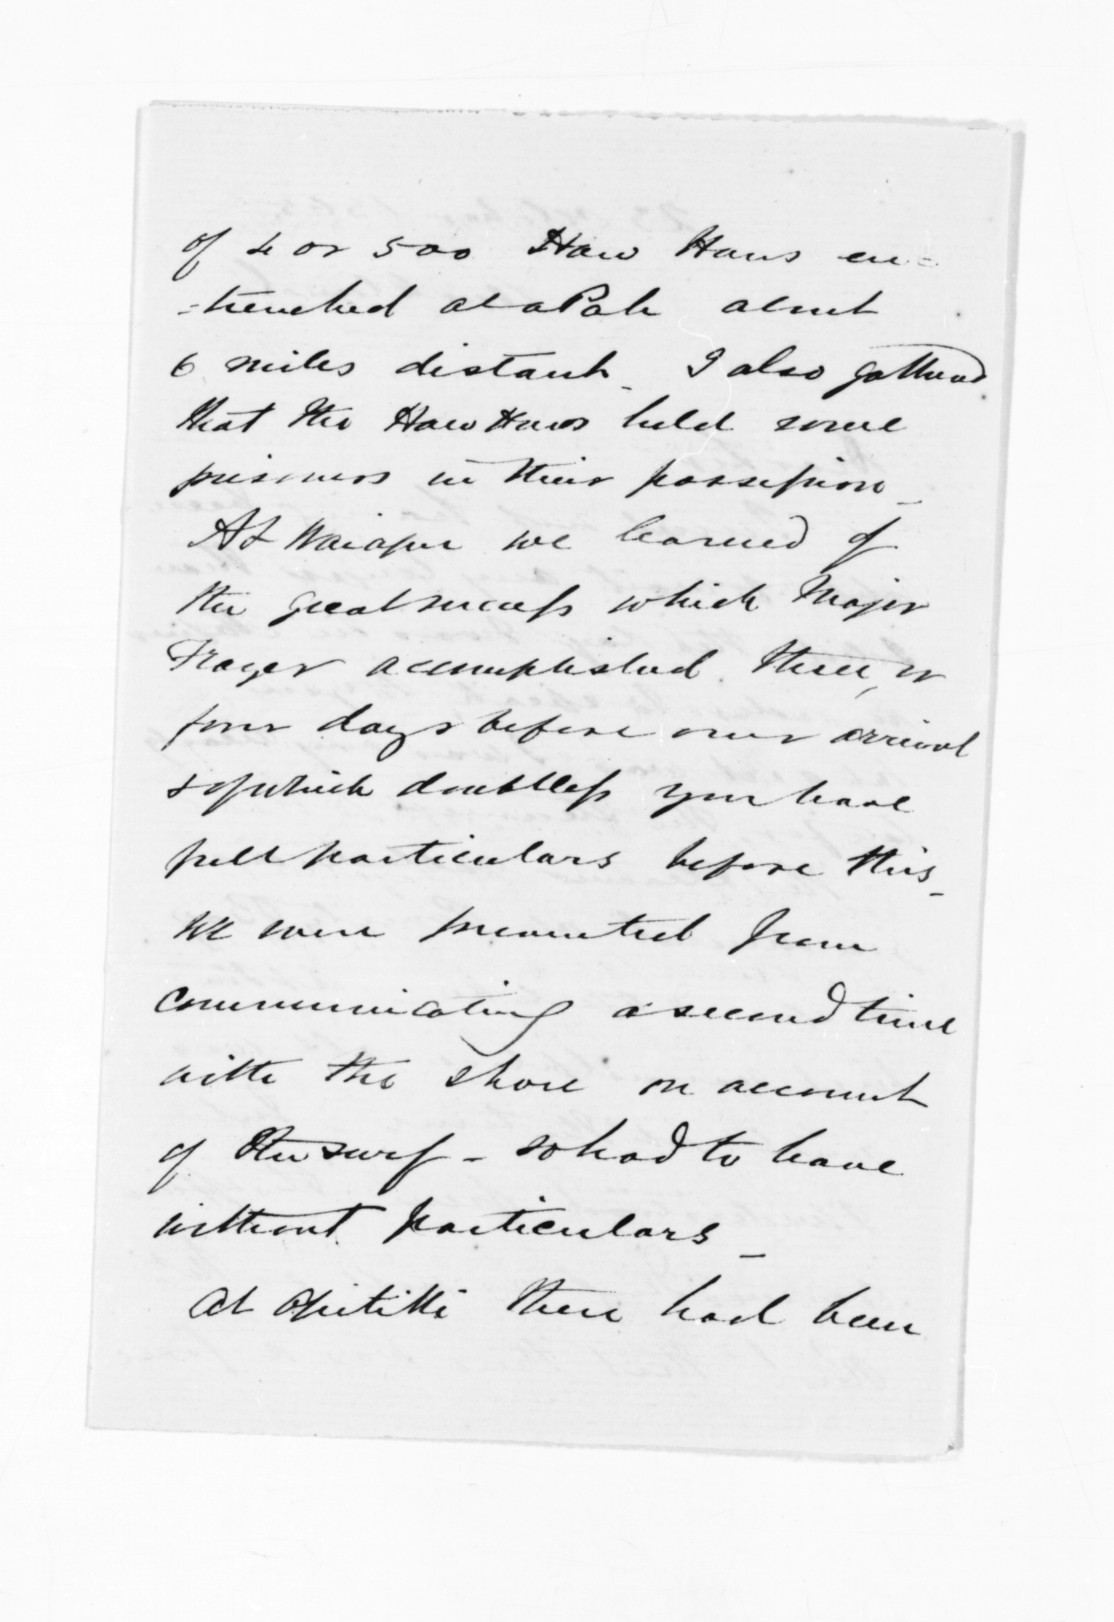 of 4 or 500 Haw Haws en=
=trenched at a Pah about
6 miles distant _ I also gathered
that the Haw Haws held some
prisoners in their possession _
At Waiapu we learned of
the great success which Major
Frazer accomplished three, or
four days before our arrival
& of which doubtless you have
full particulars before this _
We were prevented from
communicating a second time
with the shore on account
of the surf _ so had to leave
without particulars _
At Opitiki there had been